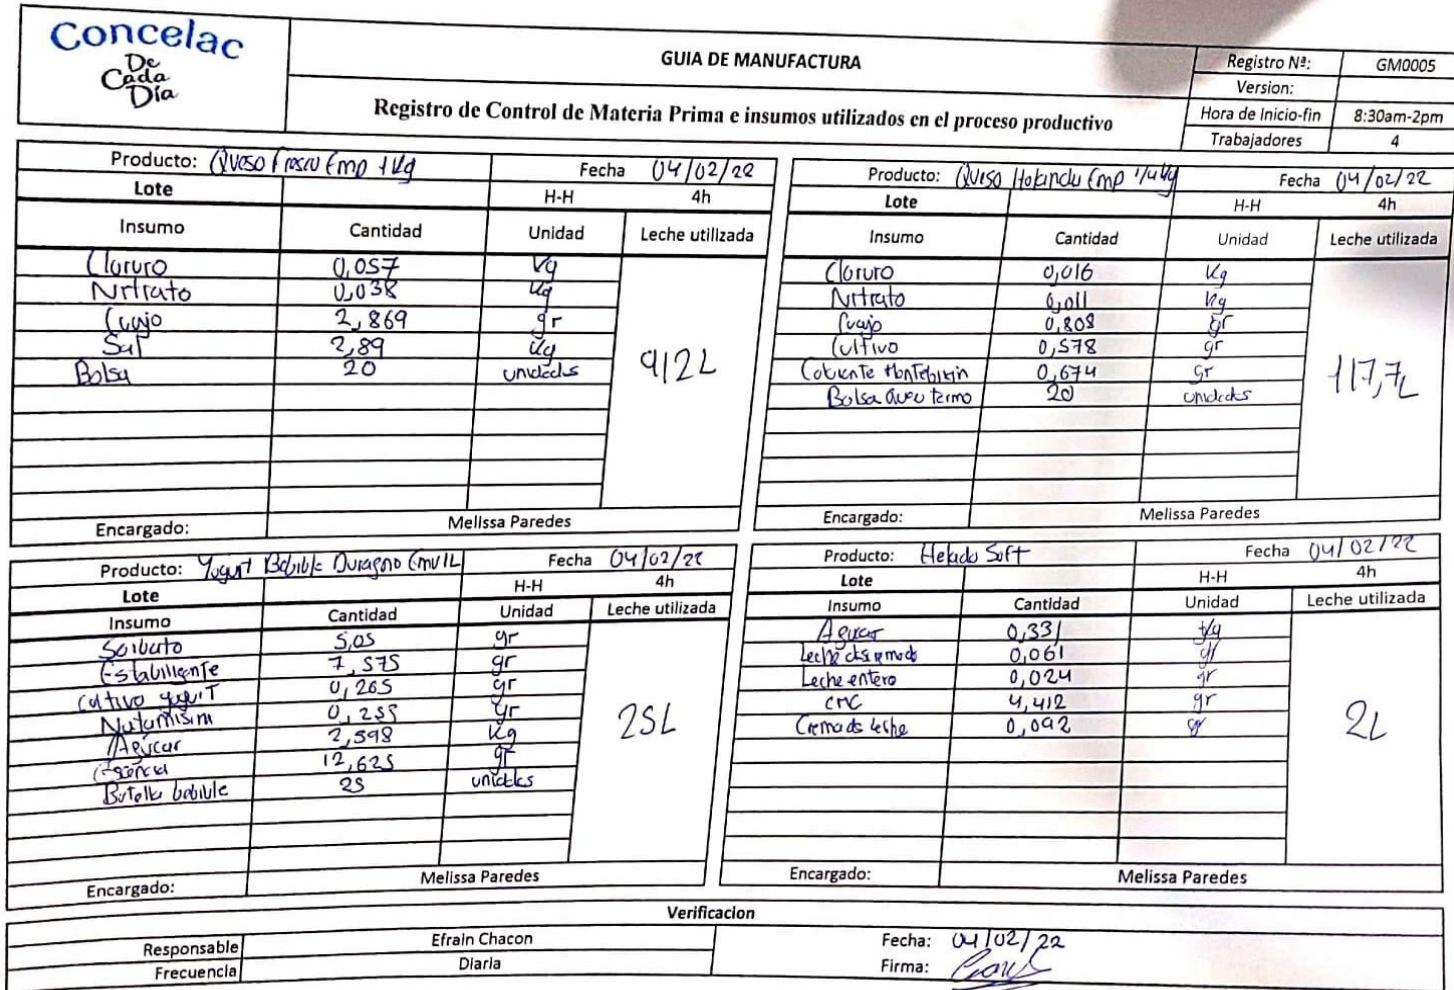 Concelac
De
Cada
Día
GUIA DE MANUFACTURA
Registro de Control de Materia Prima e insumos utilizados en el proceso productivo
Registro Nª: GM0005
Version:
Hora de Inicio-fin 8:30am-2pm
Trabajadores 4
Producto: Queso Fresco Emp 1kg Fecha 04/02/22
Lote H-H 4h
Insumo Cantidad Unidad Leche utilizada
Cloruro 0,057 Kg
Nitrato 0,038 Kg
Cuajo 2,869 gr
Sal 2,89 Kg
Bolsa 20 unidades
912L
Encargado: Melissa Paredes
Producto: Queso Holanda Emp 1/4 kg Fecha 04/02/22
Lote H-H 4h
Insumo Cantidad Unidad Leche utilizada
Cloruro 0,016 Kg
Nitrato 0,011 Kg
Cuajo 0,808 gr
Cultivo 0,578 gr
0,674 gr
Bolsa termo 20 unidades
117,7L
Encargado: Melissa Paredes
Producto: Yogurt Bebible Durazno Env 1L Fecha 04/02/22
Lote H-H 4h
Insumo Cantidad Unidad Leche utilizada
Sorbato 5,05 gr
7,575 gr
Cultivo yogurT 0,265 gr
0,255 gr
Azucar 2,598 Kg
Esencia 12,625 gr
Botella bebible 25 unidades
25L
Encargado: Melissa Paredes
Producto: Helado Soft Fecha 04/02/22
Lote H-H 4h
Insumo Cantidad Unidad Leche utilizada
Azucar 0,331 Kg
Leche 0,061
Leche entero 0,024 gr
CMC 4,412 gr
Crema de leche 0,092 gr
2L
Encargado: Melissa Paredes
Verificacion
Responsable Efrain Chacon Fecha: 04/02/22
Frecuencia Diaria Firma: